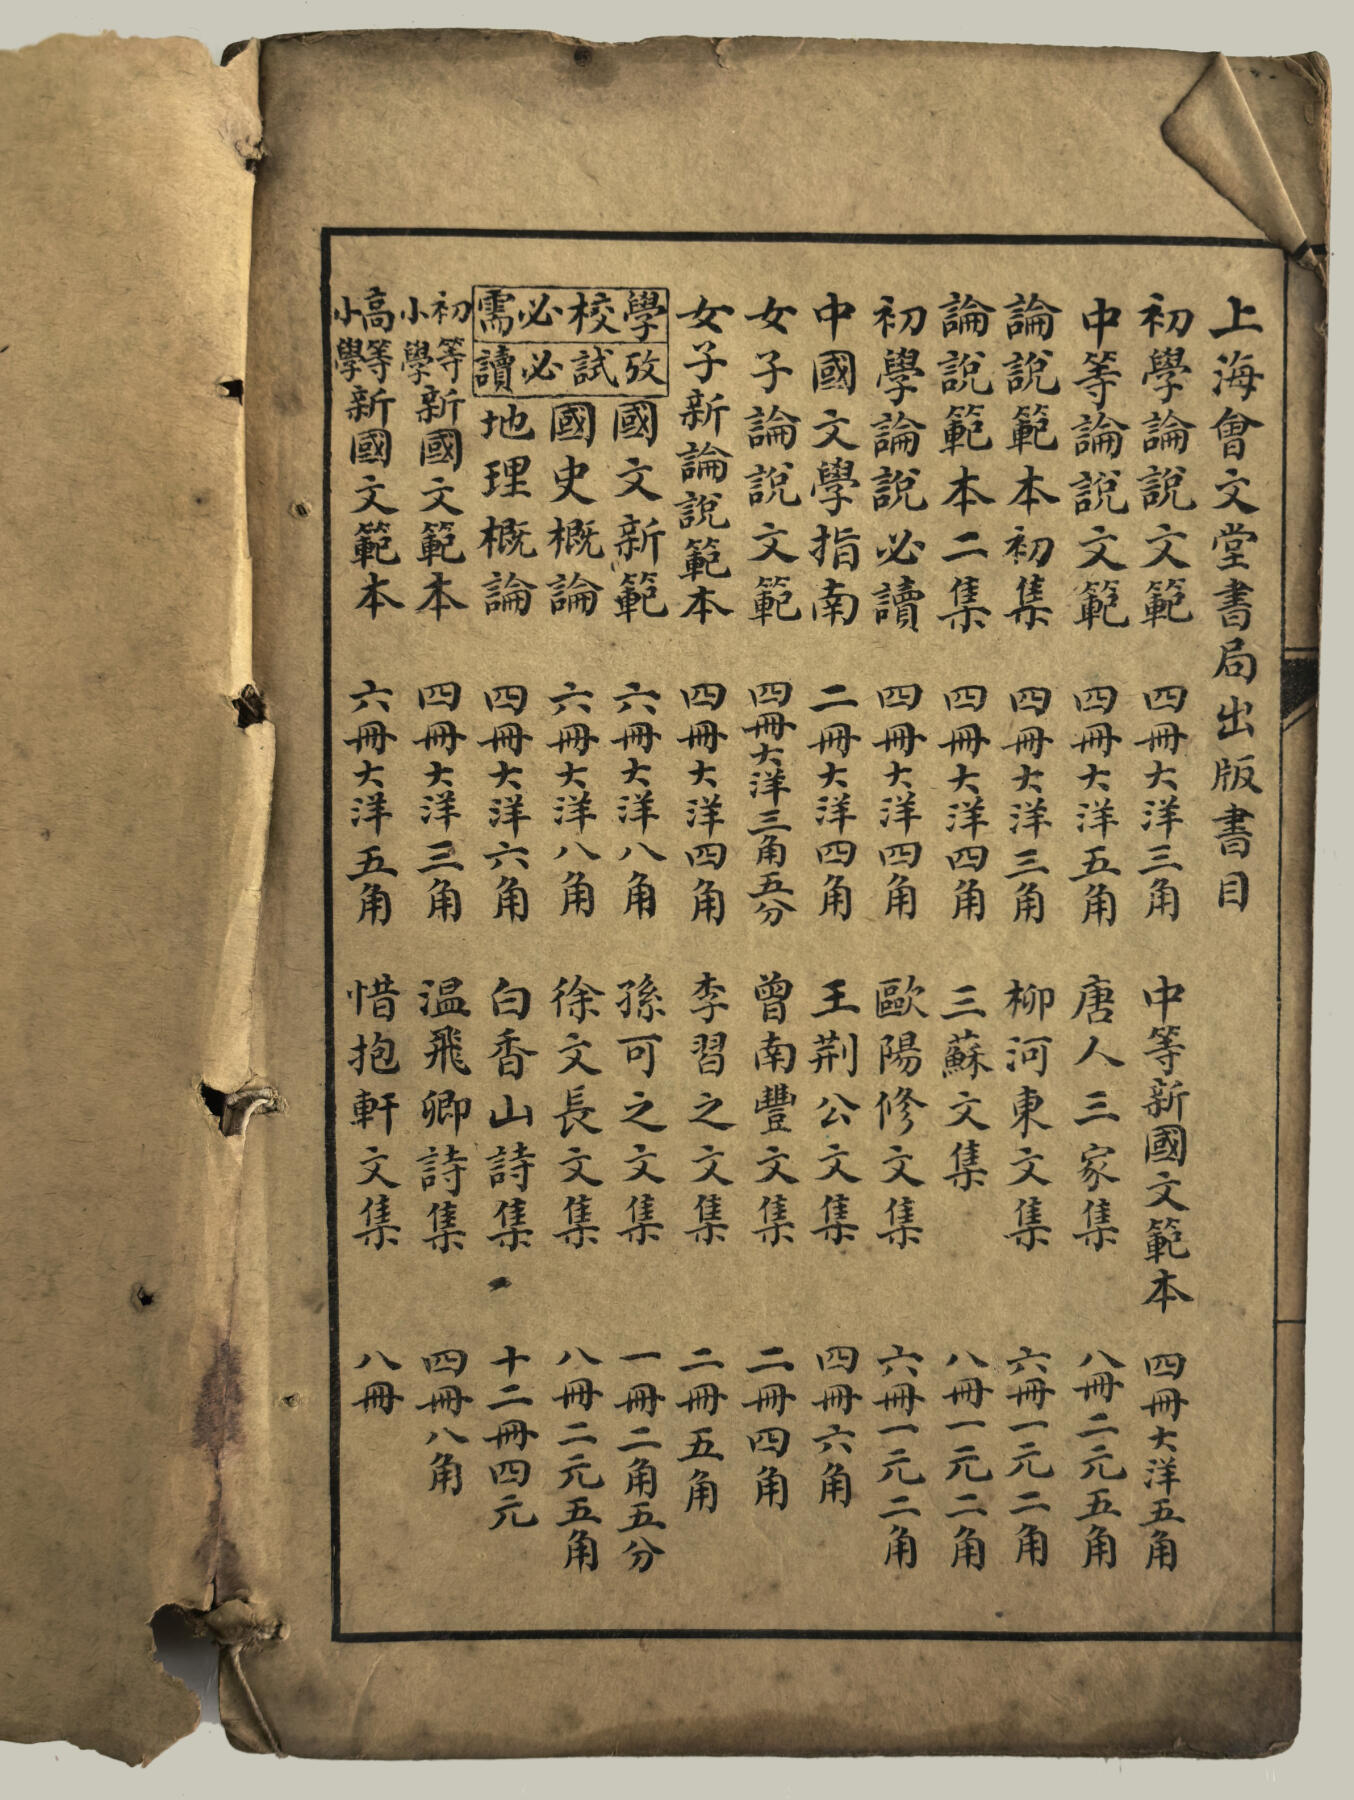 上海會文堂書局出版書目
初學論說文範 四冊大洋三角 中等新國文範本 四冊大洋五角
中等論說文範 四冊大洋五角 唐人三家集 八冊二元五角
論說範本初集 四冊大洋三角 柳河東文集 六冊一元二角
論說範本二集 四冊大洋四角 三蘇文集 八冊一元二角
初學論說必讀 四冊大洋四角 歐陽修文集 六冊一元二角
中國文學指南 二冊大洋四角 王荆公文集 四冊六角
女子論說文範 四冊大洋三角五分 曾南豐文集 二冊四角
女子新論說範本 四冊大洋四角 李習之文集 二冊五角
學校必需
攷試必讀
國文新範 六冊大洋八角 孫可之文集 一冊二角五分
國史概論 六冊大洋八角 徐文長文集 八冊二元五角
地理概論 四冊大洋六角 白香山詩集 十二冊四元
初等小學新國文範本 四冊大洋三角 温飛卿詩集 四冊八角
高等小學新國文範本 六冊大洋五角 惜抱軒文集 八冊